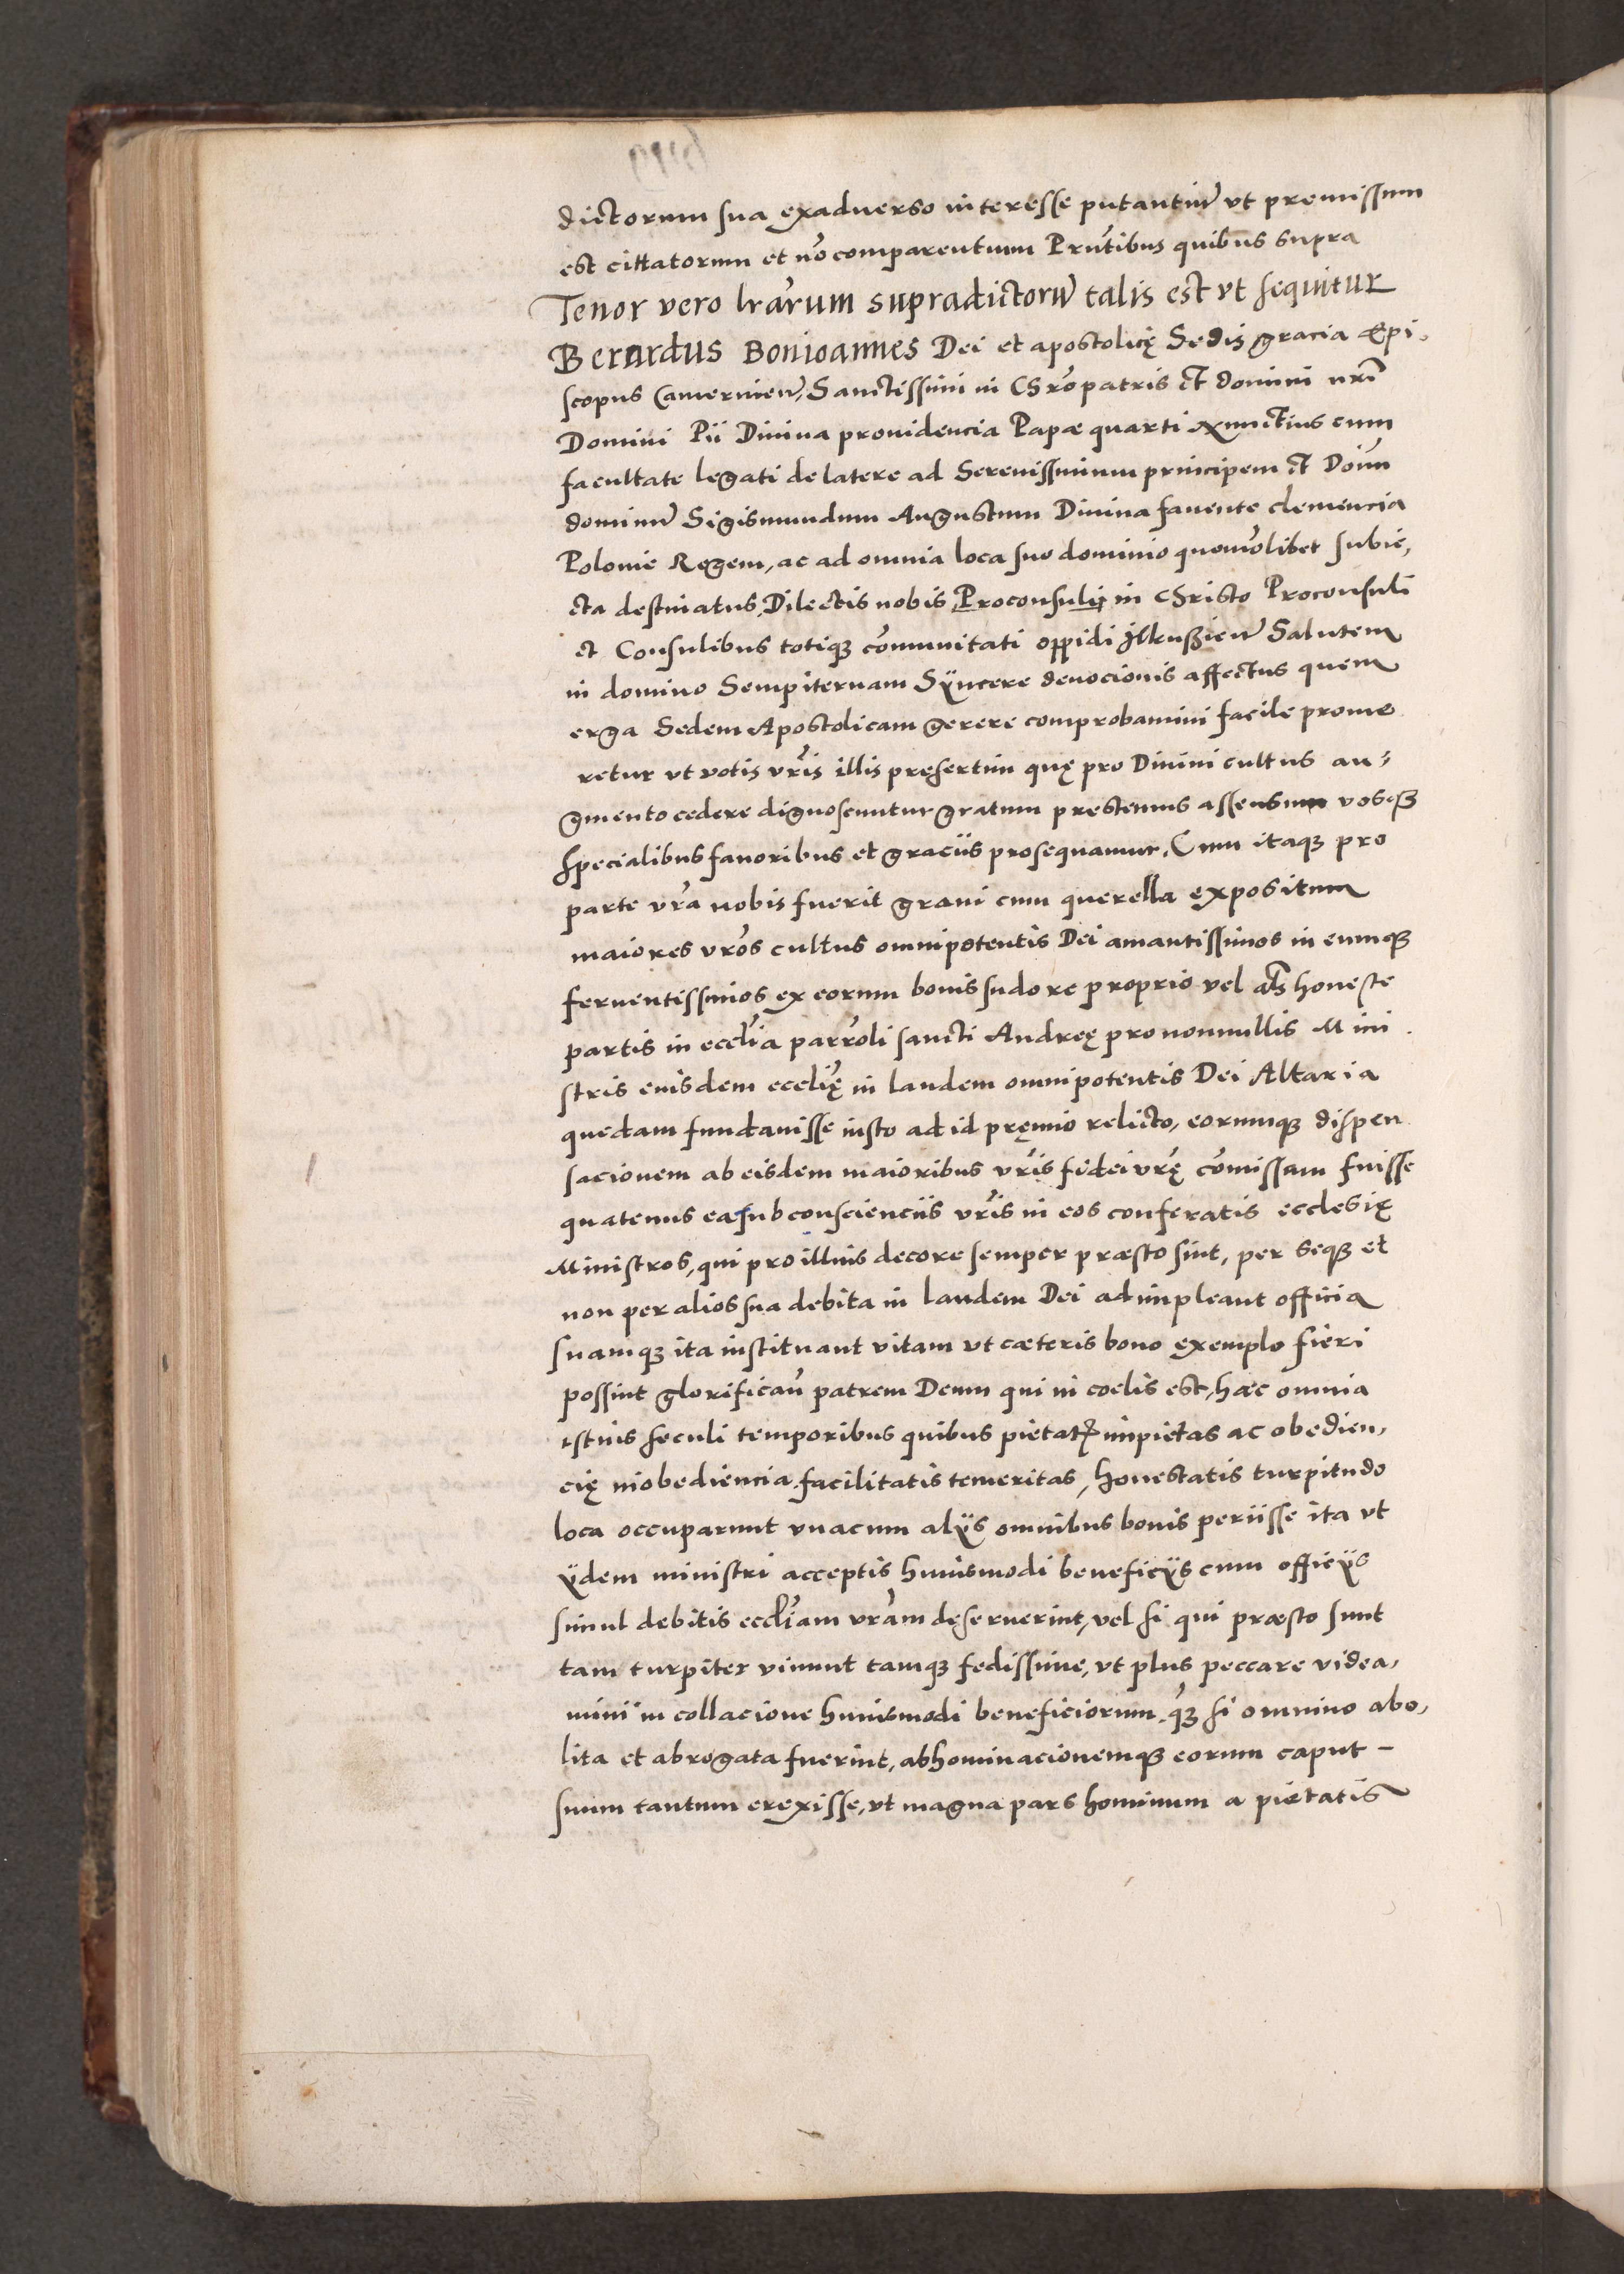 dictorum sua exadverso interesse putantiũ vt premissum
est cittatorum et nõ comparentum Prñtibus quibus supra
Tenor vero lrarum supradictorũ talis est vt sequitur
Berardus Bonioannes Dei et apostolicę Sedis gracia Epi,
scopus Camerineñ, Sanctissimi in Chro patris et domini nrĩ
Domini Pii Diuina prouidencia Papæ quarti Nunctius cum
facultate legati de latere ad Serenissimum principem et Doim
dominũ Sigismundum Augustum Diuina fauente clemencia
Polonie Regem, ac ad omnia loca suo dominio quomõlibet subie,
cta destinatus, Dilectis nobis Proconsuli in Christo Proconsuli
et Consulibus totiqȝ cõmunitati oppidi Ilkußieñ Salutem
in domino Sempiternam Sÿncere deuocionis affectus quem
erga Sedem Apostolicam gerere comprobamini facile prome
retur vt votis vrĩs illis presertim quę pro Diuini cultus au,
gmento cedere dignoscuntur gratum prestemus assensum vosqȝ
specialibus fauoribus et graciis prosequamur. Cum itaqȝ pro
parte vrã nobis fuerit graui cum querella expositum
maiores vrõs cultus omnipotentis Dei amantissimos in eumqȝ
feruentissimos ex eorum bonis sudore proprio vel als honeste
partis in ecclĩa parroli sancti Andreę pro nonnullis Mini
stris euisdem ecclię in laudem omnipotentis Dei Altaria
quedam fundauisse iusto ad id pręmio relicto, eorumqȝ dispen
sacionem ab eisdem maioribus vrĩs fidei vrę cõmissam fuisse
quatenus ea sub conscienciis vrĩs in eos conferatis ecclesię
Ministros, qui pro illius decore semper præsto sint, per seqȝ et
non per alios sua debita in laudem Dei adimpleant officia
suamqȝ ita instituant vitam vt cæteris bono exemplo fieri
possint glorificañ patrem Deum qui in coelis est, hæc omnia
istius seculi temporibus quibus pietatis impietas ac obedien,
cię inobediencia facilitatis temeritas, honestatis turpitudo
loca occuparunt vnacum alÿs omnibus bonis periisse ita vt
ÿdem ministri acceptis huiusmodi beneficÿs cum officÿs
simul debitis ecclĩam vrãm deseruerint, vel si qui præsto sunt
tam turpiter viuunt tamqȝ fedissime, vt plus peccare videa,
mini in collacione huiusmodi beneficiorum, qȝ si omnino abo,
lita et abrogata fuerint, abhominacionemqȝ eorum caput –
suum tantum erexisse, vt magna pars hominum a pietatis